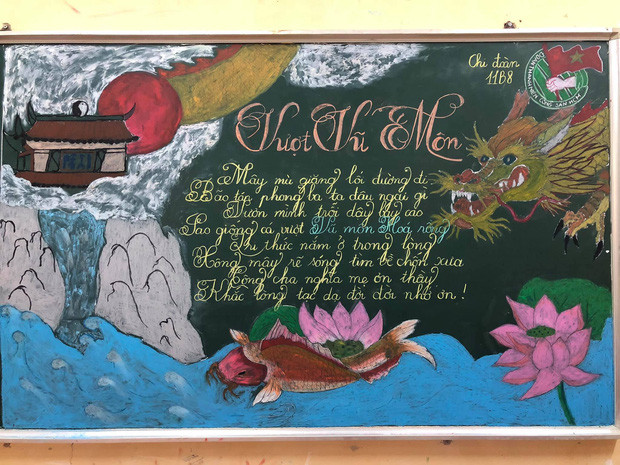 Chi đoàn
11B8
Vượt Vũ Môn
Mây mù giăng lối đường đi
Bão táp phong ba ta đâu ngại gì
Vươn mình trỗi dậy bay cao
Sao giống cá vượt Vũ môn Hoá rồng
Tri thức năm ở trong lòng
Xông mây rẽ sóng tìm về chốn xưa
Công cha nghĩa mẹ ơn thầy
Khắc lòng tạc dạ đời đời nhớ ơn!